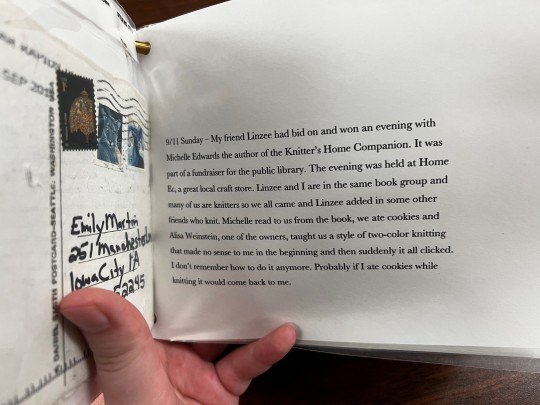 SEP 201
DANIEL SMITH POSTCARD-SEATTLE, WASHINGTON USA
Emily Martin
251 Manchester Ln
Iowa City IA
52245
9/11 Sunday – My friend Linzee had bid on and won an evening with
Michelle Edwards the author of the Knitter's Home Companion. It was
part of a fundraiser for the public library. The evening was held at Home
Ec, a great local craft store. Linzee and I are in the same book group and
many of us are knitters so we all came and Linzee added in some other
friends who knit. Michelle read to us from the book, we ate cookies and
Alisa Weinstein, one of the owners, taught us a style of two-color knitting
that made no sense to me in the beginning and then suddenly it all clicked.
I don't remember how to do it anymore. Probably if I ate cookies while
knitting it would come back to me.